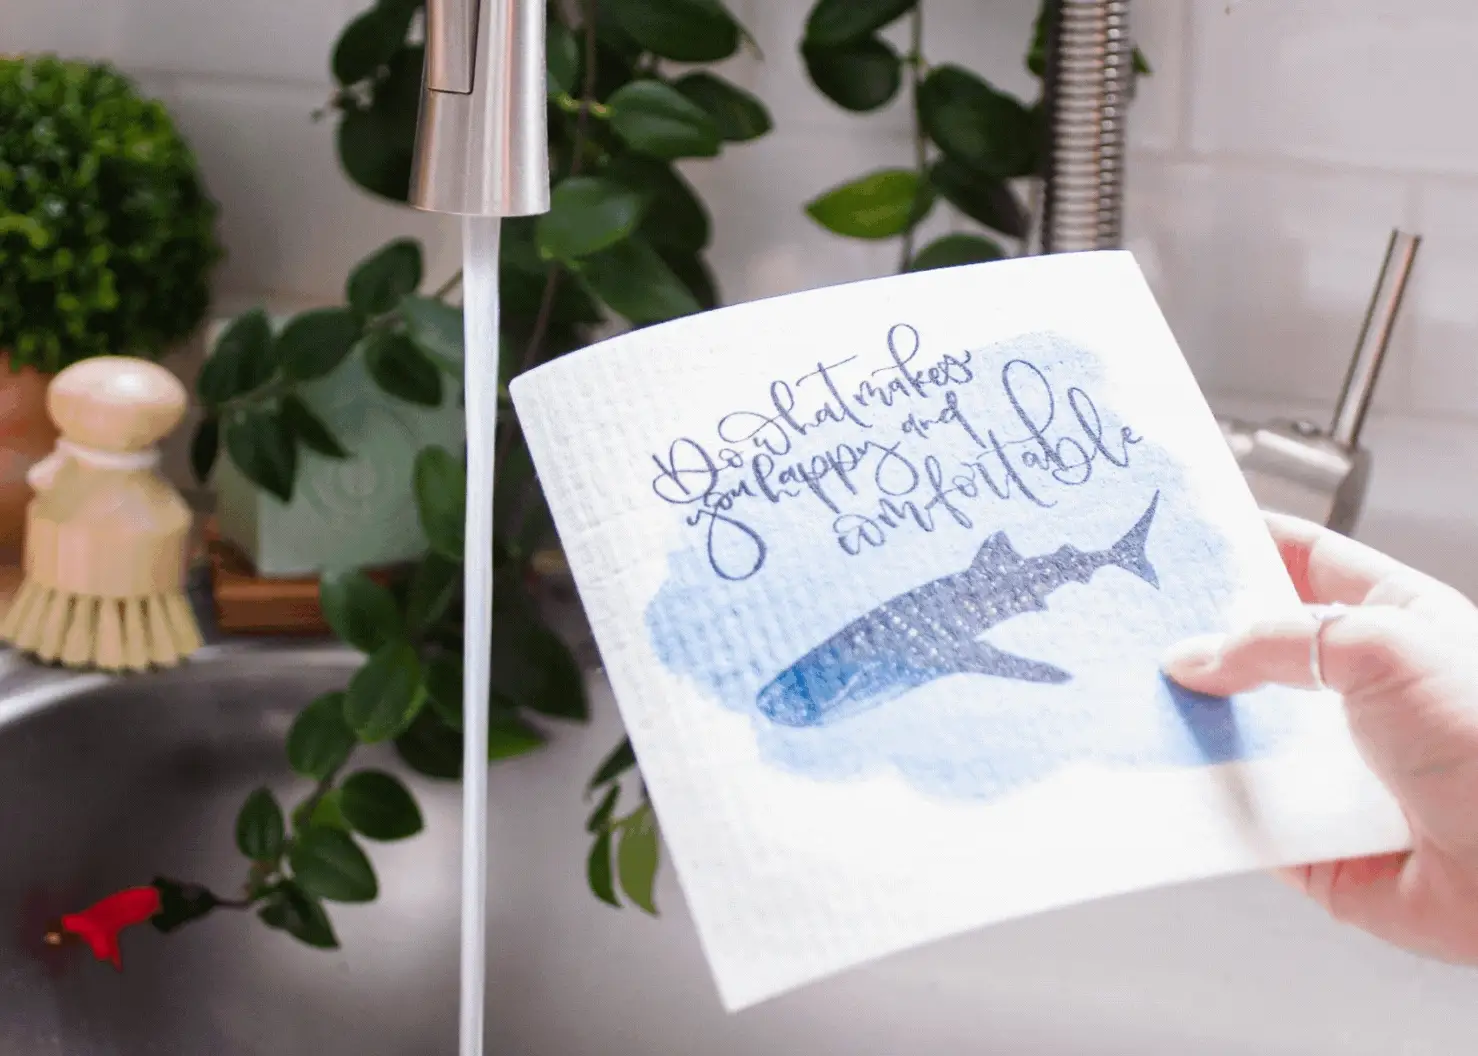 Do what makes
you happy and
comfortable